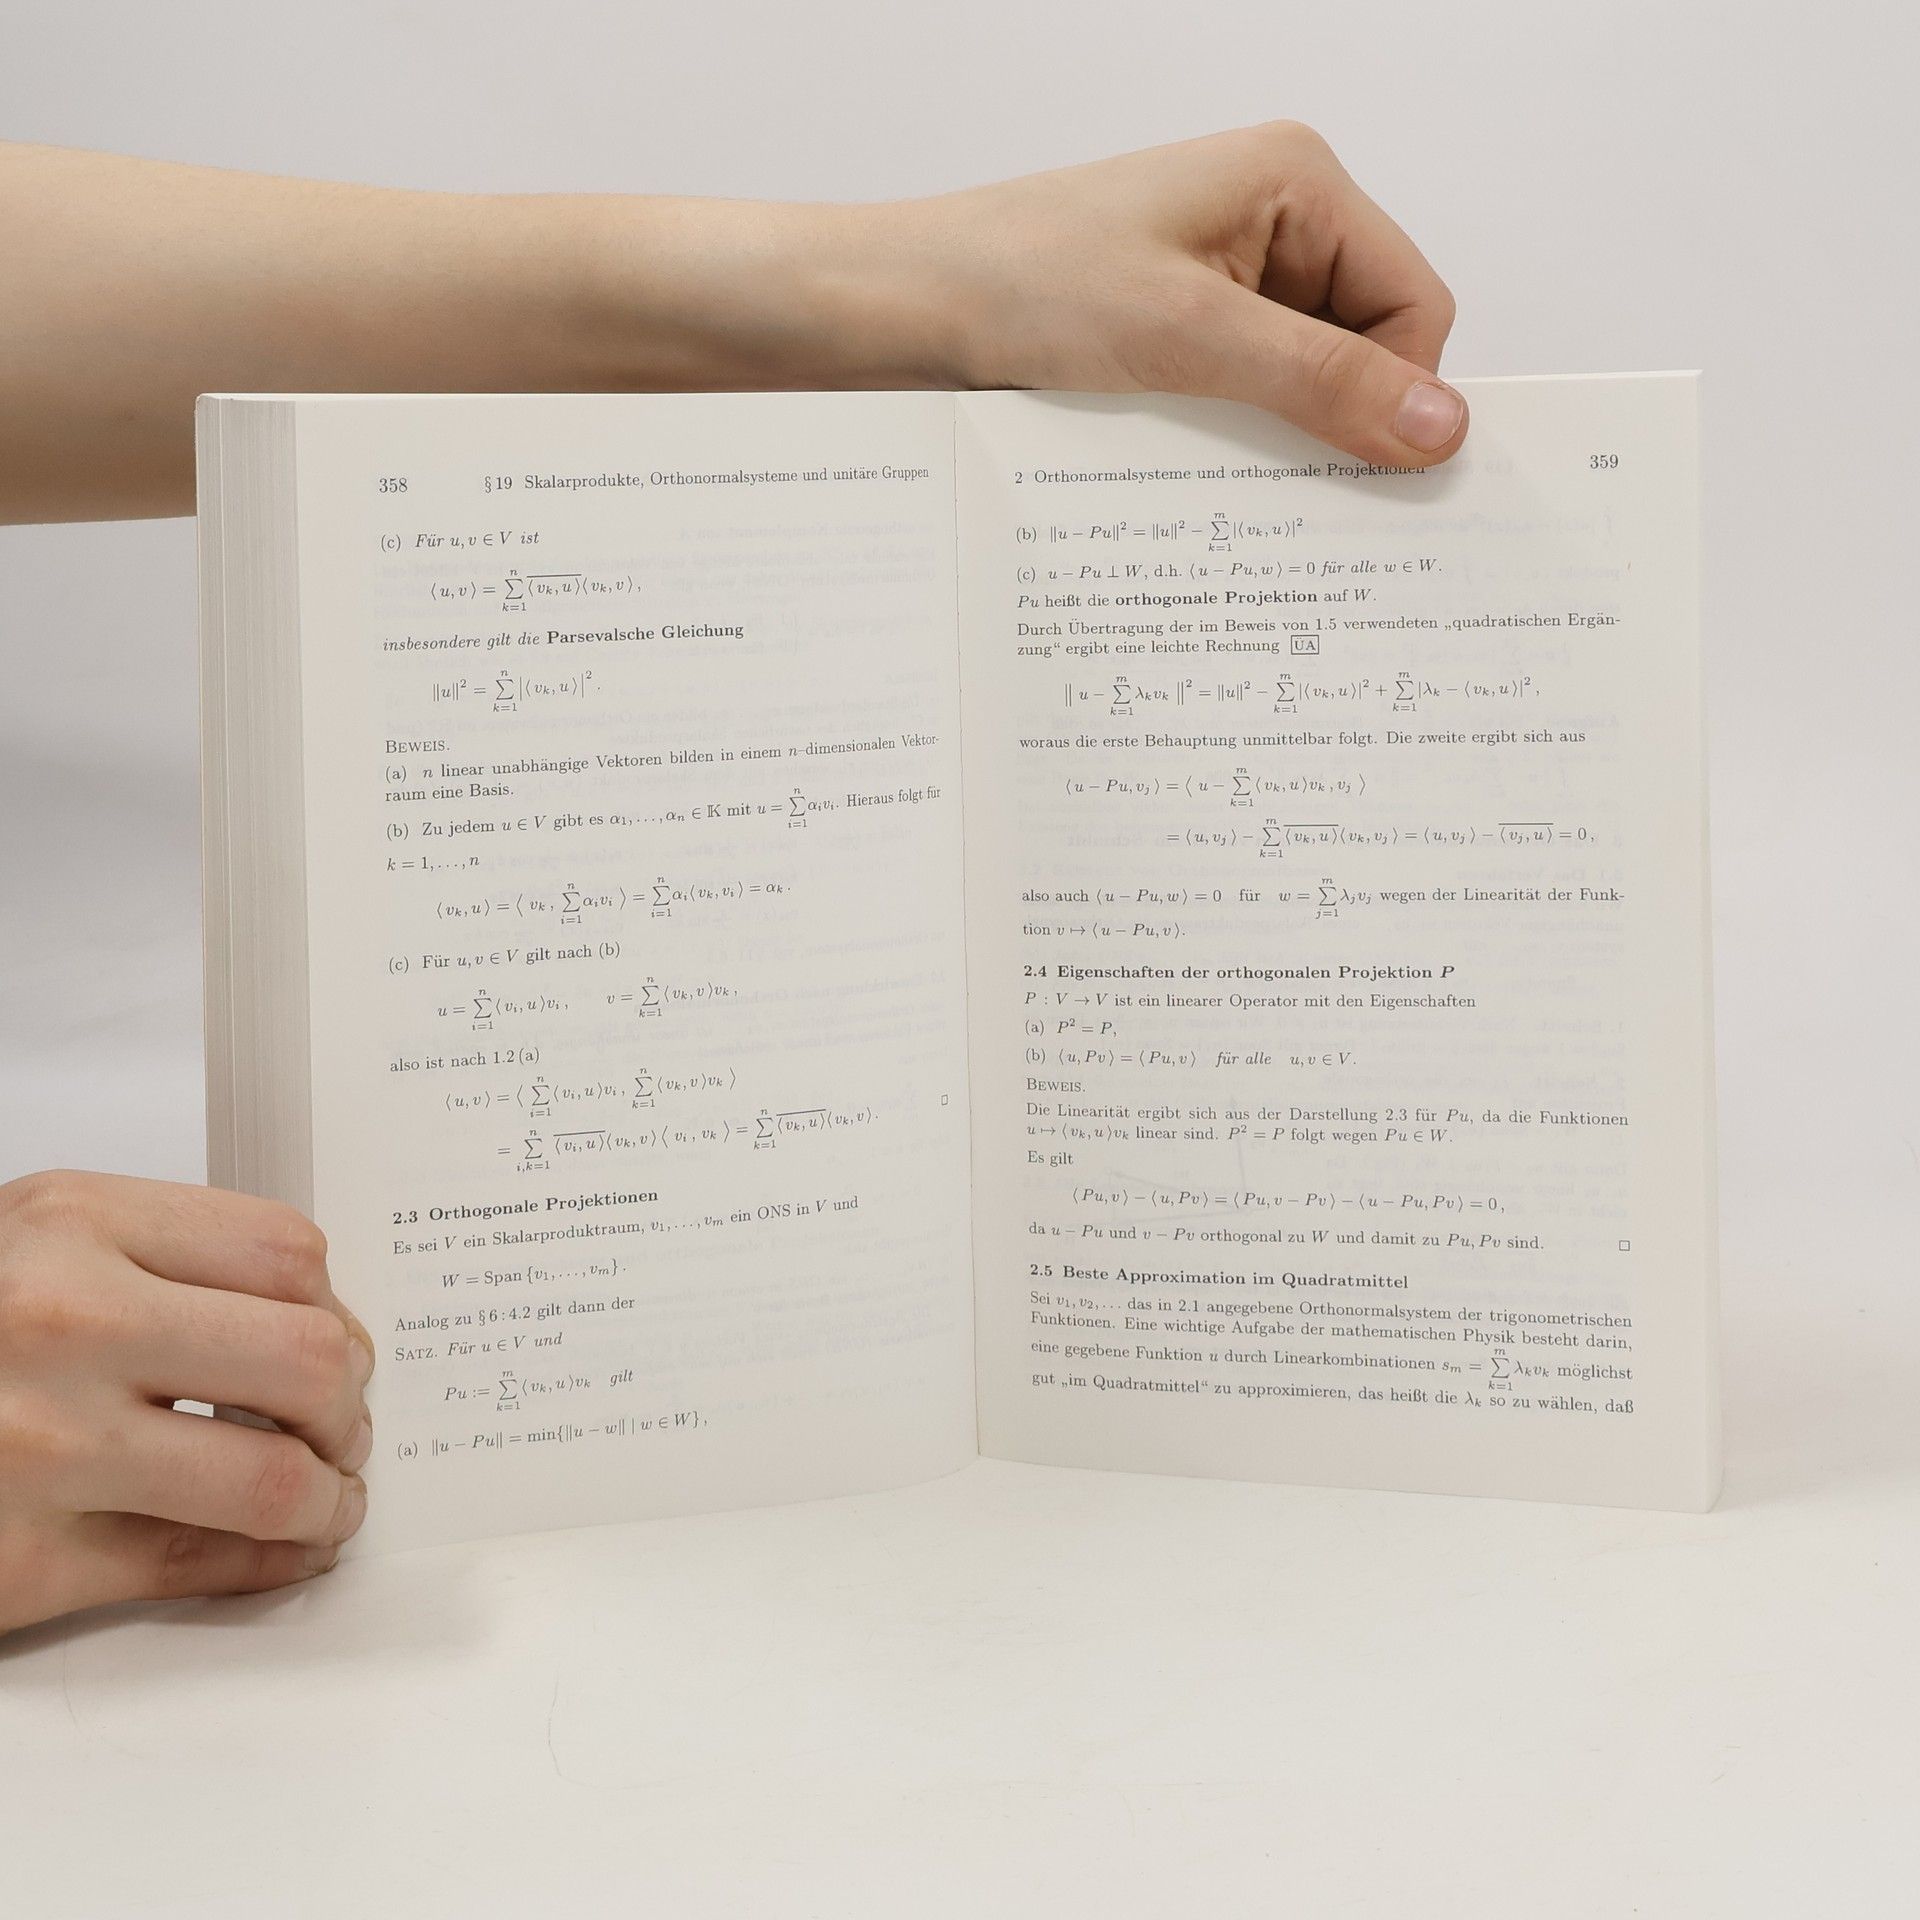 358 § 19 Skalarprodukte, Orthonormalsysteme und unitäre Gruppen
(c) Für u, v ∈ V ist
⟨u, v⟩ = ∑_{k=1}^{n} \overline{⟨v_k, u⟩}⟨v_k, v⟩,
insbesondere gilt die Parsevalsche Gleichung
‖u‖² = ∑_{k=1}^{n} |⟨v_k, u⟩|².
BEWEIS.
(a) n linear unabhängige Vektoren bilden in einem n–dimensionalen Vektor-
raum eine Basis.
(b) Zu jedem u ∈ V gibt es α₁, …, α_n ∈ 𝕂 mit u = ∑_{i=1}^{n} α_i v_i. Hieraus folgt für
k = 1, …, n
⟨v_k, u⟩ = ⟨v_k, ∑_{i=1}^{n} α_i v_i⟩ = ∑_{i=1}^{n} α_i⟨v_k, v_i⟩ = α_k.
(c) Für u, v ∈ V gilt nach (b)
u = ∑_{i=1}^{n} ⟨v_i, u⟩v_i, v = ∑_{k=1}^{n} ⟨v_k, v⟩v_k,
also ist nach 1.2 (a)
⟨u, v⟩ = ⟨∑_{i=1}^{n} ⟨v_i, u⟩v_i, ∑_{k=1}^{n} ⟨v_k, v⟩v_k⟩
= ∑_{i,k=1}^{n} \overline{⟨v_i, u⟩}⟨v_k, v⟩⟨v_i, v_k⟩ = ∑_{k=1}^{n} \overline{⟨v_k, u⟩}⟨v_k, v⟩. □
2.3 Orthogonale Projektionen
Es sei V ein Skalarproduktraum, v₁, …, v_m ein ONS in V und
W = Span {v₁, …, v_m}.
Analog zu § 6 : 4.2 gilt dann der
SATZ. Für u ∈ V und
Pu := ∑_{k=1}^{m} ⟨v_k, u⟩v_k gilt
(a) ‖u − Pu‖ = min{‖u − w‖ | w ∈ W},
2 Orthonormalsysteme und orthogonale Projektionen 359
(b) ‖u − Pu‖² = ‖u‖² − ∑_{k=1}^{m} |⟨v_k, u⟩|²
(c) u − Pu ⊥ W, d.h. ⟨u − Pu, w⟩ = 0 für alle w ∈ W.
Pu heißt die orthogonale Projektion auf W.
Durch Übertragung der im Beweis von 1.5 verwendeten „quadratischen Ergän-
zung“ ergibt eine leichte Rechnung ÜA
‖u − ∑_{k=1}^{m} λ_k v_k‖² = ‖u‖² − ∑_{k=1}^{m} |⟨v_k, u⟩|² + ∑_{k=1}^{m} |λ_k − ⟨v_k, u⟩|²,
woraus die erste Behauptung unmittelbar folgt. Die zweite ergibt sich aus
⟨u − Pu, v_j⟩ = ⟨u − ∑_{k=1}^{m} ⟨v_k, u⟩v_k, v_j⟩
= ⟨u, v_j⟩ − ∑_{k=1}^{m} \overline{⟨v_k, u⟩}⟨v_k, v_j⟩ = ⟨u, v_j⟩ − \overline{⟨v_j, u⟩} = 0,
also auch ⟨u − Pu, w⟩ = 0 für w = ∑_{j=1}^{m} λ_j v_j wegen der Linearität der Funk-
tion v ↦ ⟨u − Pu, v⟩.
2.4 Eigenschaften der orthogonalen Projektion P
P : V → V ist ein linearer Operator mit den Eigenschaften
(a) P² = P,
(b) ⟨u, Pv⟩ = ⟨Pu, v⟩ für alle u, v ∈ V.
BEWEIS.
Die Linearität ergibt sich aus der Darstellung 2.3 für Pu, da die Funktionen
u ↦ ⟨v_k, u⟩v_k linear sind. P² = P folgt wegen Pu ∈ W.
Es gilt
⟨Pu, v⟩ − ⟨u, Pv⟩ = ⟨Pu, v − Pv⟩ − ⟨u − Pu, Pv⟩ = 0,
da u − Pu und v − Pv orthogonal zu W und damit zu Pu, Pv sind. □
2.5 Beste Approximation im Quadratmittel
Sei v₁, v₂, … das in 2.1 angegebene Orthonormalsystem der trigonometrischen
Funktionen. Eine wichtige Aufgabe der mathematischen Physik besteht darin,
eine gegebene Funktion u durch Linearkombinationen s_m = ∑_{k=1}^{m} λ_k v_k möglichst
gut „im Quadratmittel“ zu approximieren, das heißt die λ_k so zu wählen, daß